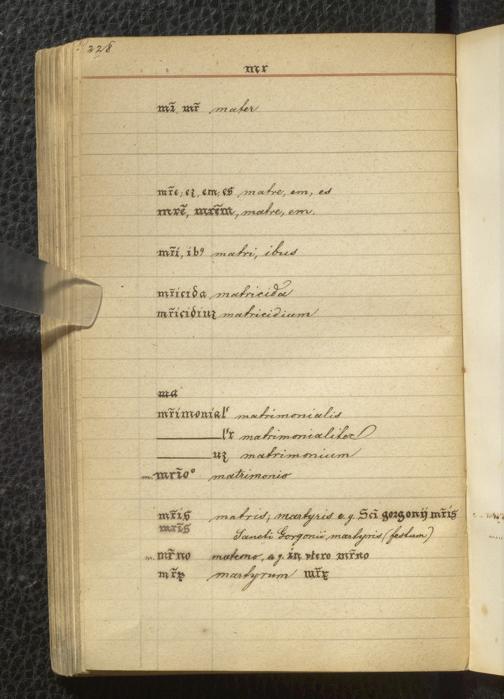 228
mr
mr̃, mr̃ mater
mr̃e, eꝫ, em, es̃ matre, em, es
mrẽ, mrẽm, matre, em.
mr̃i, ibꝰ matri, ibus
mr̃icida matricida
mr̃icidiuꝫ matricidium
ma
mr̃imonial' matrimonialis
l'r matrimonialiter
uꝫ matrimonium
mrĩoº matrimonio
mr̃is matris, martyris e.g. Sc̃i gorgonij mr̃is
mr̃is Sancti Gorgonii, martyris (festum)
mr̃no materno, e.g. in vtero mr̃no
mr̃ꝝ martyrum mr̃ꝝ